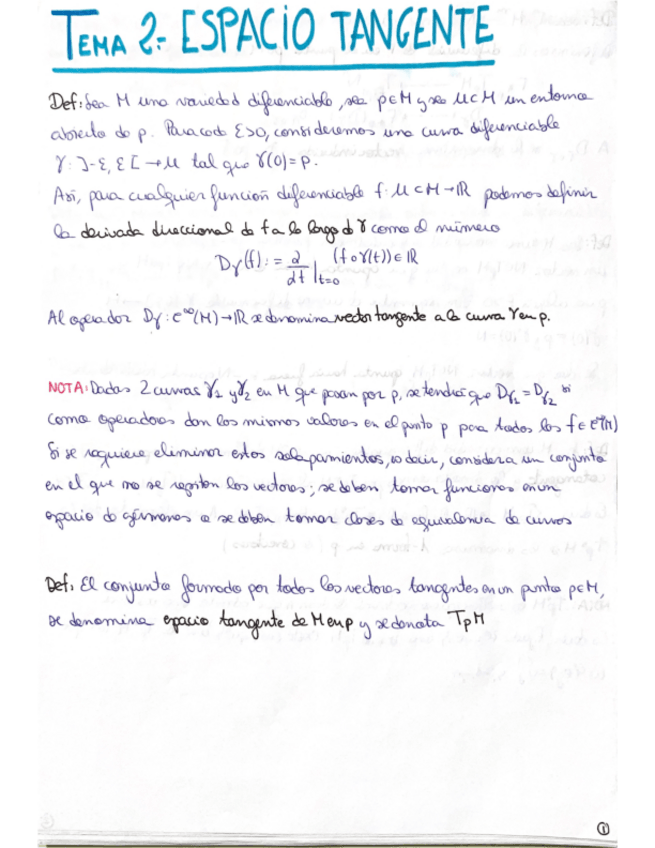 TEMA 2.- ESPACIO TANGENTE
Def: Sea M una variedad diferenciable, sea p∈M y sea U⊂M un entorno
abierto de p. Para cada ε>0, consideremos una curva diferenciable
γ: ]-ε, ε[ → U tal que γ(0)=p.
Así, para cualquier función diferenciable f: U⊂M→ℝ podemos definir
la derivada direccional de f a lo largo de γ como el número
Dγ(f) := d/dt |t=0 (f∘γ(t)) ∈ ℝ
Al operador Dγ: C^∞(M)→ℝ se denomina vector tangente a la curva γ en p.
NOTA: Dadas 2 curvas γ1 y γ2 en M que pasan por p, se tendrá que Dγ1 = Dγ2 si
como operadores dan los mismos valores en el punto p para todas las f∈C^∞(M)
Si se requiere eliminar estos solapamientos, es decir, considerar un conjunto
en el que no se repitan los vectores; se deben tomar funciones en un
espacio de gérmenes o se deben tomar clases de equivalencia de curvas
Def: El conjunto formado por todos los vectores tangentes en un punto p∈M,
se denomina espacio tangente de M en p y se denota TpM
1